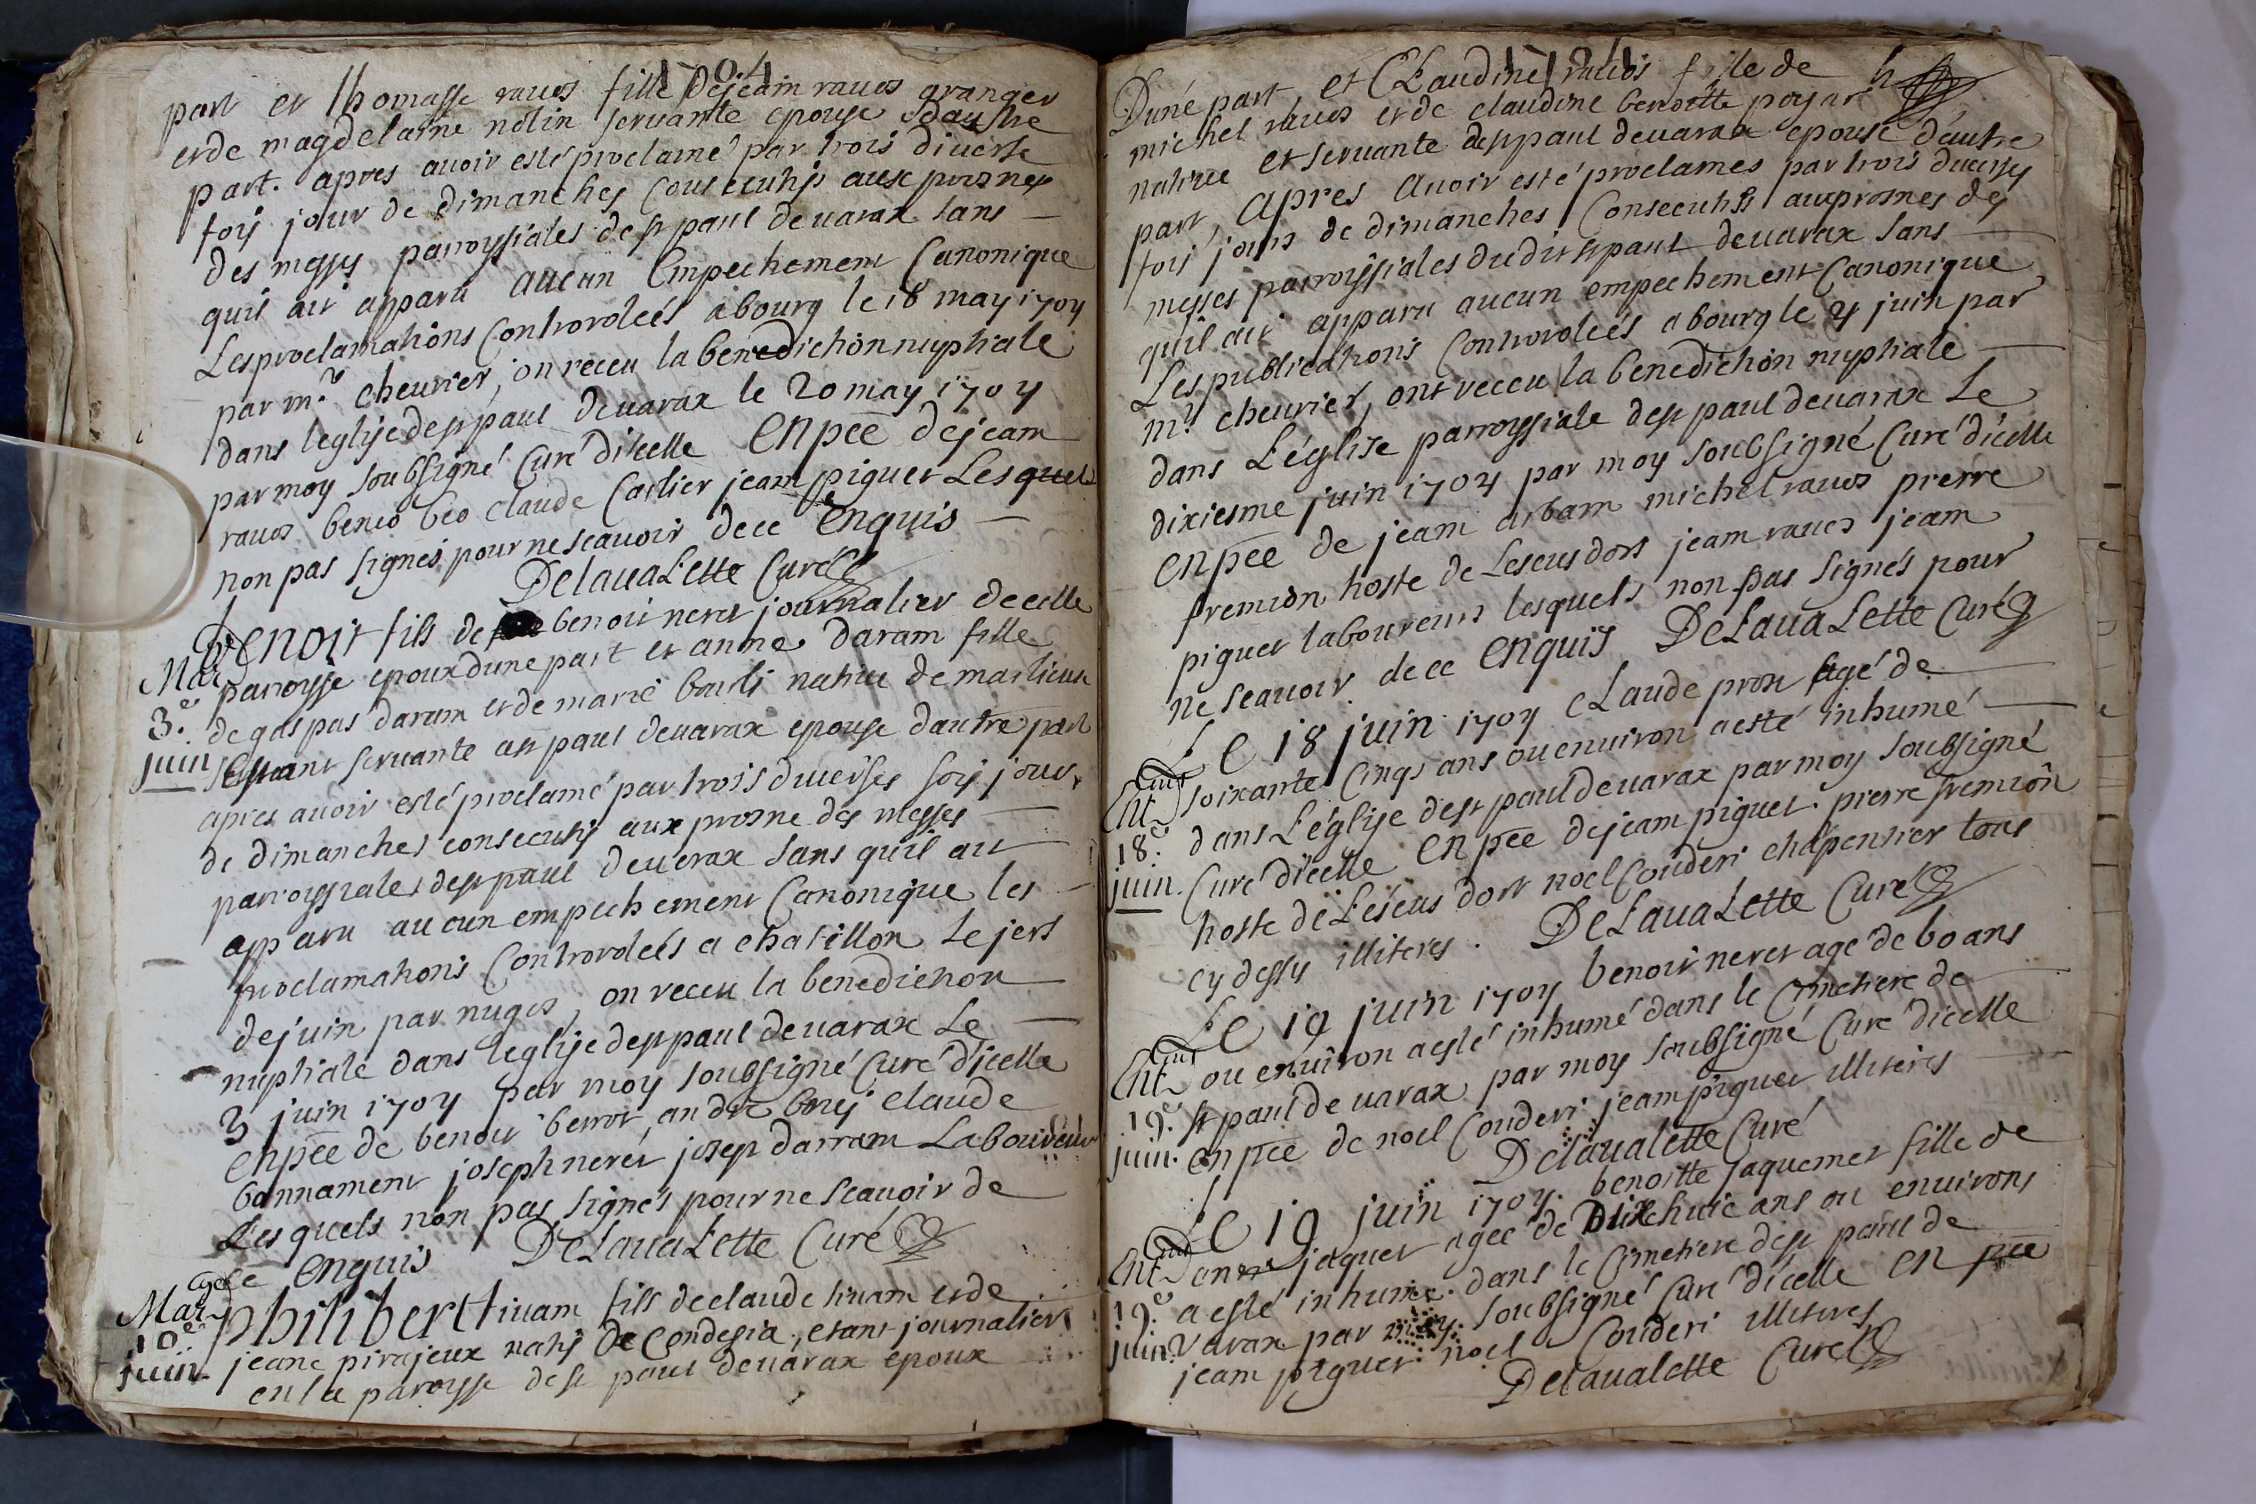 1704
part et thomasse raues fille dejeam raues granger
et de magdelaine nolin servante epouse dautre
part. apres avoir esté proclamé par trois diverse
fois jour de dimanches consecutifs aux prosnes
des messes parroyssiales de st paul devarax sans
quil ait apparu aucun Empechement Canonique
Les proclamations Controrolées a bourg le 18 may 1704
par mr. cheurier, on receu la benediction nuptiale
dans leglise de st paul devarax le 20 may 1704
par moy soubsigné Curé dicelle en pce dejeam
raues benoi beo claude Carlier jeam piguet Lesquels
non pas signés pour ne scavoir de ce enquis
DelavaLette Curé
Mar
3.e
juin
benoit fils de benoit neret journalier decelle
parroysse epoux dune part et anne daram fille
de gaspas daram et de marie native de marlieux
servante a st paul devarax epouse dautre part
apres avoir esté proclamé par trois diverses fois jour
de dimanches consecutifs aux prosne des messes
parroyssiales de st paul deverax sans quil ait
apparu aucun empechement Canonique les
proclamations Controrolées a chatillon le jers
de juin par nugos, on receu la benediction
nuptiale dans leglise de st paul devarax Le
3 juin 1704 par moy soubsigné Curé dicelle
en pce de benoit andre claude
bannament joseph neret josep darram Laboureur
Lesquels non pas signés pour ne scavoir de
ce enquis DeLavaLette Curé
Mar
10e
juin
philibert tivam fils declaude tivam et de
jeane pirajeux natif de Condesia, etant journalier
en la paroysse de st paul devarax epoux
1704
Duné part et CLaudine raues fille de
michel raues et de claudine benoitte poyar
native et servante de st paul devarax epouse dautre
part, apres avoir esté proclames par trois diverses
fois jours de dimanches Consecutifs aux prosnes des
messes parroyssiales dudit st paul devarax sans
quil ait apparu aucun empechement Canonique
Les publications Controrolées a bourg le juin par
mr. cheurier, ont receu la benediction nuptiale
dans L'église parroyssiale de st paul devarax Le
dixiesme juin 1704 par moy soubsigné Curé dicelle
en pce de jeam arbam michel raues pierre
fremion hoste de Lescus dort jeam raues jeam
piguet laboureurs lesquels non pas signés pour
ne scavoir de ce enquis DeLavaLette Curé
Ent
18.e
juin
Le 18 juin 1704 CLaude pron agé de
soixante Cinqs ans ou environ a esté inhumé
dans L'église de st paul devarax par moy soubsigné
Curé dicelle en pce dejeam piguet. pierre fremion
hoste de Lescus dort noel Couderi chapentier tous
cy dessus illiteres. DeLavaLette Curé
Ent
19.e
juin.
Le 19 juin 1704 benoit neret age de 60 ans
ou environ a esté inhumé dans le Cimetiere de
st paul de varax par moy soubsigné Curé dicelle
en pce de noel Couderi. jeam piguet illiteres
Delavalette Curé
Ent
19.e
juin.
Le 19 juin 1704. benoitte jaquemet fille de
anne jaquet agée de Dixhuic ans ou environs
a esté inhumée dans le Cimetiere de st paul de
Varax par moy soubsigné Curé dicelle en pce
jeam piguet noel Couderi illiteres
Delavalette Curé